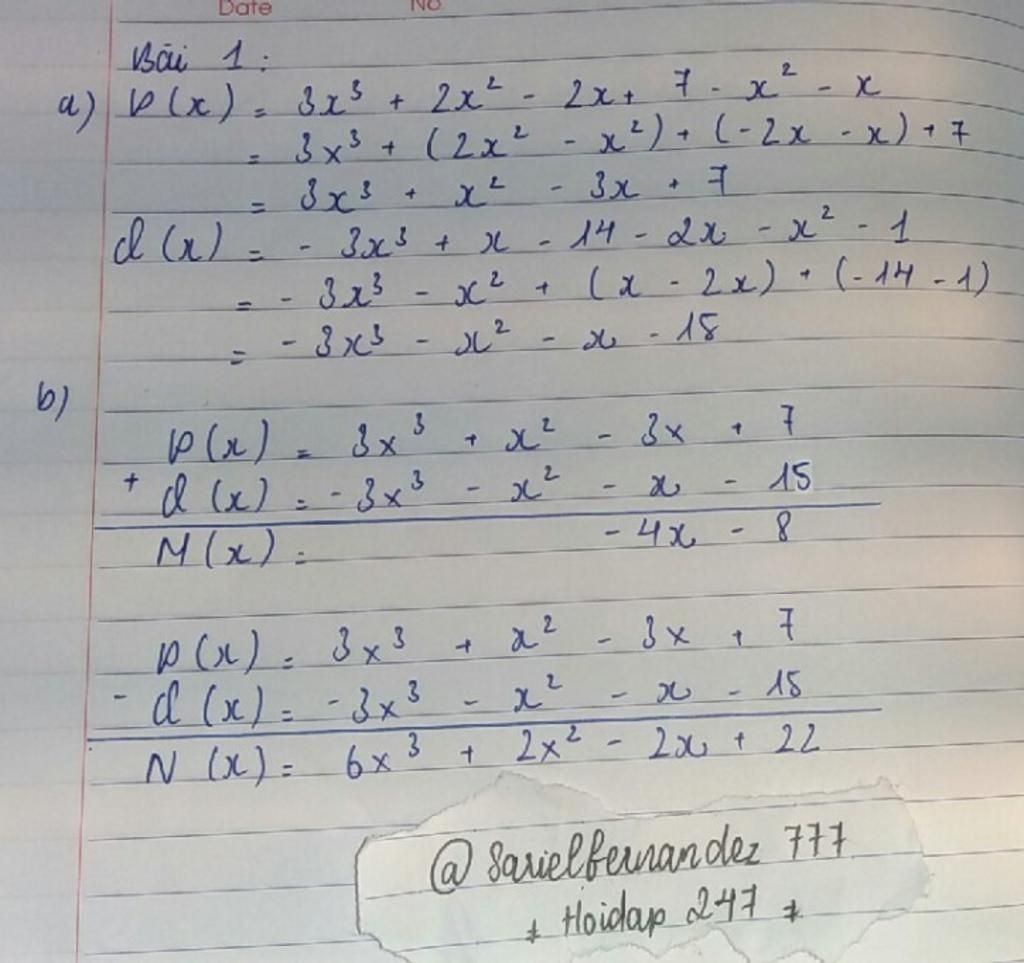 Date No
Bài 1:
a) P(x) = 3x³ + 2x² - 2x + 7 - x² - x
= 3x³ + (2x² - x²) + (-2x - x) + 7
= 3x³ + x² - 3x + 7
Q(x) = - 3x³ + x - 14 - 2x - x² - 1
= - 3x³ - x² + (x - 2x) + (-14 - 1)
= - 3x³ - x² - x - 15
b)
P(x) = 3x³ + x² - 3x + 7
+ Q(x) = - 3x³ - x² - x - 15
M(x) = - 4x - 8
P(x) = 3x³ + x² - 3x + 7
- Q(x) = - 3x³ - x² - x - 15
N(x) = 6x³ + 2x² - 2x + 22
@ Sarielfernandez 777
* Hoidap 247 *